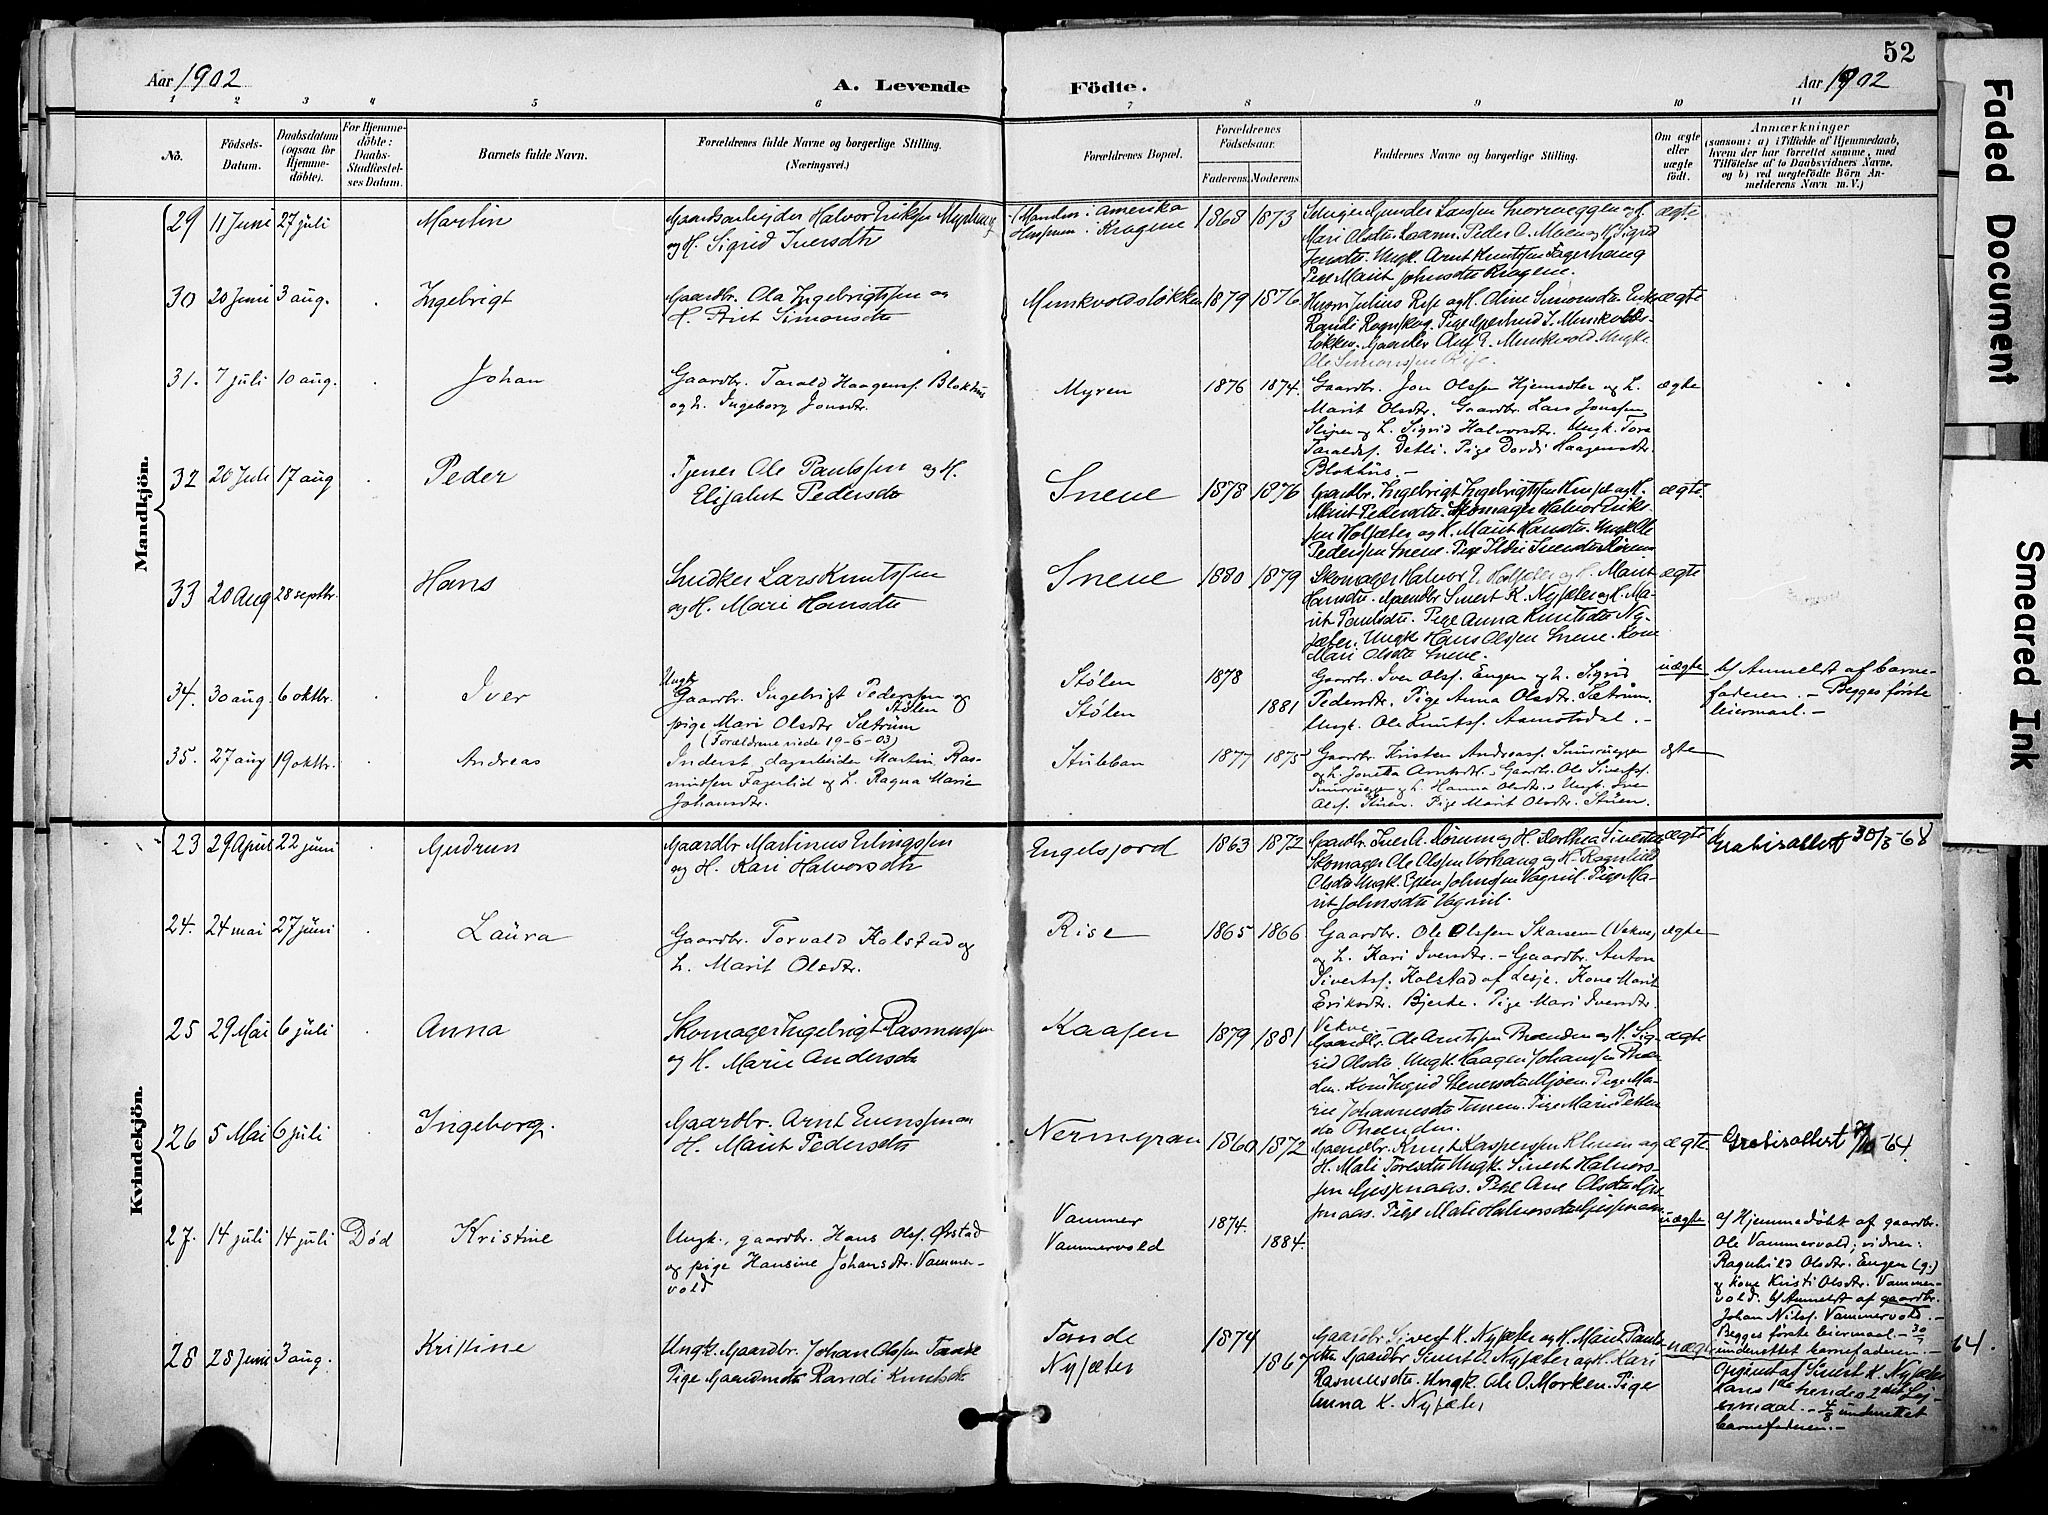 52
Aar 1902
A. Levende
Födte.
Aar 1902
1 2 3 4 5 6 7 8 9 10 11
No.
Födsels-
Datum.
Daabsdatum
(ogsaa for
Hjemme-
döbte).
For Hjemme-
döbte:
Daabs-
Stadfæstel-
ses Datum.
Barnets fulde Navn.
Forældrenes fulde Navne og borgerlige Stilling.
(Næringsvei.)
Forældrenes Bopæl.
Forældrenes
Födselsaar.
Faderens. Moderens.
Faddernes Navne og borgerlige Stilling.
Om ægte
eller
uægte
födt.
Anmærkninger
(saasom: a) i Tilfælde af Hjemmedaab,
hvem der har forrettet samme, med
Tilföielse af to Daabsvidners Navne,
og b) ved uægtefödte Börn An-
melderens Navn m. V.)
Mandkjön.
29 11 Juni 27 juli Martin
Gaardsarbejder Halvor Eriksen
og H. Sigrid Iversdtr
Manden i Amerika
i Kragene
1868 1873
Mari Olsdtr. Peder O. Moen og H. Sigrid
Jensdtr. Ungk. Arnt Knutssen Fagerhaug
Pige Marit Johnsdtr Kragene.
ægte
30 20 Juni 3 aug. Ingebrigt
Gaardbr. Ola Ingebrigtssen og
H. Brit Simonsdtr
Munkvoldsløkken
1879 1876
Julius Rise og H. Oline Simonsdtr
Ole Simonssen Rise.
ægte
31. 7 juli 10 aug. Johan
Gaardbr. Torald Haagenss. Blokhus
og h. Ingeborg Jonsdtr.
Myren
1876 1874.
Gaardbr. Jon Olssen Hjemsdtr og h.
Marit Olsdtr. Gaardbr. Lars Jonssen
Sliper og h. Sigrid Halvorsdtr. Ungk. Tore
Toraldss. Detli. Pige Dordi Haagensdtr.
Blokhus. -
ægte
32 20 Juli 17 aug Peder
Tjener Ole Paulssen og H.
Elisabet Pedersdtr
Snene
1878 1876
Gaardbr. Ingebrigt Ingebrigtssen og H.
Marit Pedersdtr. Skomager Halvor Eriks-
sen Holsæter og H. Marit Hansdtr. Ungk. Ole
Pederssen Snene. Pige Ildri Sivertsdtr
ægte.
33 20 Aug 28 septbr. Hans
Snedker Lars Knutssen
og H. Mari Hansdtr
Snene
1880 1879
Skomager Halvor E. Holsæter og H. Marit
Hansdtr. Gaardbr Sivert K. Nysæter og H. Ma-
rit Paulsdtr. Pige Anna Knutsdtr Ny-
sæter. Ungk Hans Olssen Snene. Kone
Mari Olsdtr Snene.
ægte
34. 30 aug. 6 oktbr. Iver
Ungk.
Gaardbr. Ingebrigt Pederssen Stølen og
pige Mari Olsdtr. Sætrum
(Forældrene viede 19-6-03)
Stølen
Stølen
1878
1881
Gaardbr. Iver Olss. Engen og h. Sigrid
Pedersdtr. Pige Anna Olsdtr. Sætrum.
Ungk. Ole Knutss. Aamotsdal. -
uægte
b) Anmeldt af barne-
faderen. - Begges første
leiermaal. -
35. 27 aug 19 oktbr. Andreas
Inderst, dagarbeider Martin Ras-
mussen Fagerlid og h. Ragna Marie
Johansdtr.
Stubban
1877 1875
Gaardbr. Kristen Andreass. Snurruæggen
og h. Jonetta Arntsdtr. Gaardbr. Ole Sivertss.
og h. Hanna Olsdtr. Ungk. Iver
Olss. Stuen. Pige Marit Olsdtr. Stuen.
ægte
Kvindekjön.
23 29 April 22 juni Gudrun
Gaardbr Martinus Erlingssen
og H. Kari Halvorsdtr
Engelsjord
1863 1872
Gaardbr Iver O. og H. Dorthea Sivertsdtr
Skomager Ole Olssen Vorhaug og H. Ragnhild
Olsdtr Ungk. Esten Johnssen Vognil. Pige Ma-
rit Johnsdtr Vognil.
ægte
Gratisattest 30/8-68
24. 24 mai 27 juni Laura
Gaardbr. Torvald Kolstad og
h. Marit Olsdtr.
Rise
1865 1866
Gaardbr. Ole Olssen Skarsem (Vekve)
og h. Kari Iversdtr. - Gaardbr. Anton
Sivertss. Kolstad af Lesje. Kone Marit
Eriksdtr. Bjerke. Pige Mari Iversdtr.
Vekve -
ægte
25 29 Mai 6 juli Anna
Skomager Ingebrigt Rasmussen
og H. Marie Andersdtr
Kaasen
1879 1881
Gaardbr. Ole Arntssen Brænden og H. Sig-
rid Olsdtr. Ungk Haagen Johanssen Bræn-
den. Kone Ingrid Steensdtr Mjøen. Pige Ma-
rie Johannesdtr Pige Mari
dtr Brænden.
ægte
26 5 Mai 6 juli Ingeborg.
Gaardbr. Arnt Evenssen og
H. Marit Pedersdtr
Nermyran
1860 1872
Gaardbr. Knut Kaspersen og
H. Mali Toresdtr Ungk. Sivert Halvors-
sen Gisnaas. Pige Ane Olsdtr Gis-
naas. Pige Mali Halvorsdtr Gisnaas
ægte.
Gratisattest -64
27. 14 juli 14 juli Død Kristine
Ungk., gaardbr. Hans Olss. Ørstad
og pige Hansine Johansdtr. Vammer-
vold
Vammer
Vammervold
1874.
1884.
uægte
a) Hjemmedøbt af gaardbr.
Ole Vammervold; vidner:
Ragnhild Olsdtr. Engen (g.)
og kone Kristi Olsdtr. Vammer-
vold. b) Anmeldt af gaardbr.
Johan Nilss. Vammervold. -
Begges første leiermaal. - 30/7
underrettet barnefaderen. -
28 28 Juni 3 aug. Kristine
Ungk. Gaardbr. Johan Olssen Tande
Pige Randi Knutsdtr
Tande
Nysæter
1874
1867
Gaardbr. Sivert K. Nysæter og H. Marit Pauls-
dtr. Gaardbr Sivert A. Nysæter og H. Kari
Rasmusdtr. Ungk. Ole O. Morken. Pige
Anna K. Nysæter
uægte
Opgivet af Sivert K. Nysæter
hans 1ste hendes 2det Lej-
ermaal. - 4/8 underrettet
barnefaderen. -
64.
Faded Document
Smeared Ink